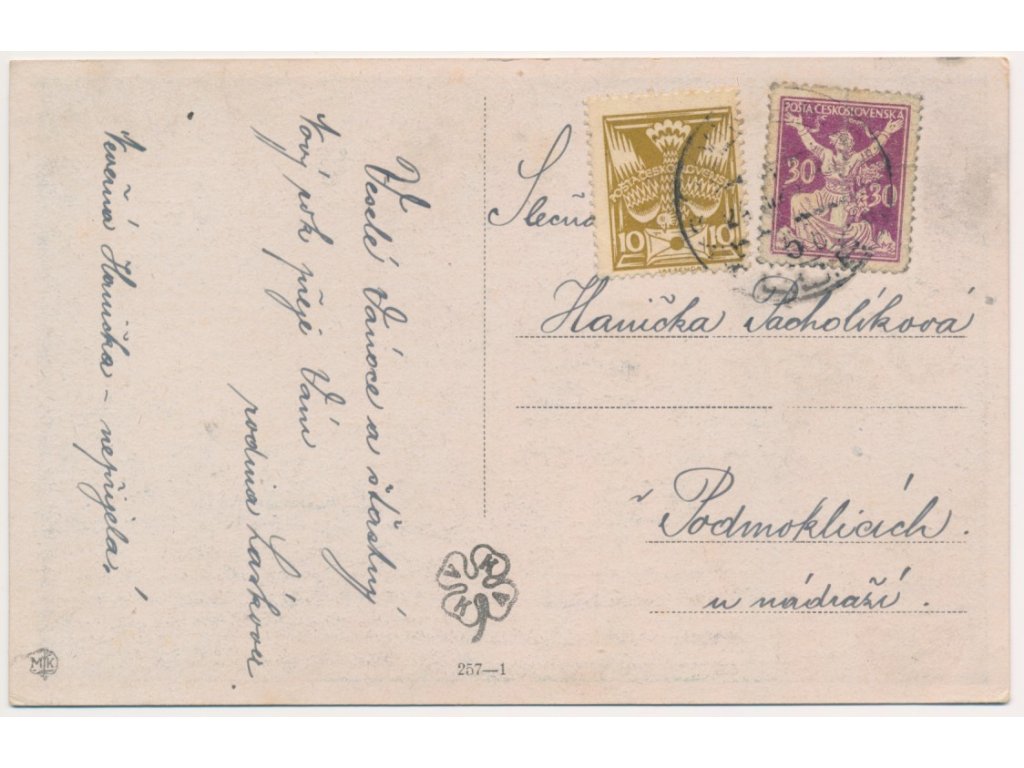 Veselé Vánoce a šťastný
Nový rok přeje Vám
rodina Láskova
Nevěrná Hanička – nepřijela!
Slečna
Hanička Sacholíková
v Podmoklicích.
u nádraží.
POŠTA ČESKOSLOVENSKÁ
10 10
POŠTA ČESKOSLOVENSKÁ
30 30
257—1
MK